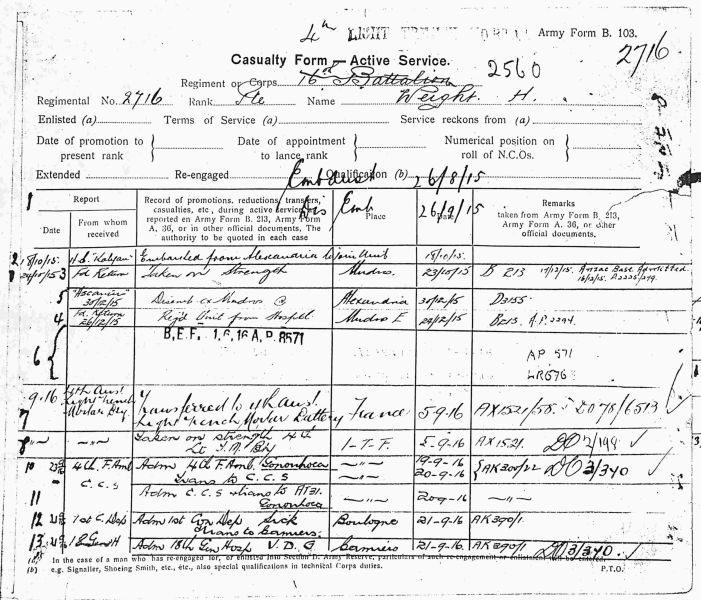 4th LIGHT TRENCH MORTAR Army Form B. 103.
2716
Casualty Form—Active Service.
2560
Regiment or Corps 16th Battalion
Regimental No. 2716 Rank Pte Name Weight. H.
Enlisted (a) Terms of Service (a) Service reckons from (a)
Date of promotion to present rank Date of appointment to lance rank Numerical position on roll of N.C.Os.
Extended Re-engaged Qualification (b)
Emb 26/8/15
Dis Emb 26/9/15
Report
Date From whom received
Record of promotions, reductions, transfers, casualties, etc., during active service, as reported on Army Form B. 213, Army Form A. 36, or in other official documents. The authority to be quoted in each case
Place
Date
Remarks taken from Army Form B. 213, Army Form A. 36, or other official documents.
1
2 18/10/15. H.S. Embarked from Alexandria to join Unit 18/10/15.
3 Fd. Return Taken on Strength Mudros. 23/10/15 B 213 Anzac Base
5 30/12/15 Disemb ex Mudros @ Alexandria 30/12/15 D3155
4 Fd. Return 26/12/15 Rej'd Unit from Hospll Mudros E. B213. A.P. 2294.
B.E.F. 1.6.16 A.P. 8571
6 AP 571
LRG76
7 9.16 4th Aust Light Trench Mortar Bty Transferred to 4th Aust. Light Trench Mortar Battery France 5.9.16 AX1521/58. DO 78/6513
8 Taken on strength 4th Lt T.M. Bty I-T-F. 5-9-16 AX1521. DO 2/199
10 4th F. Amb Adm 4th F. Amb. Gonorrhoea 19-9-16
C.C.S trans to C.C.S 20-9-16 AK300/22 DO 3/340
11 Adm C.C.S & trans to AT31. Gonorrhoea 20-9-16
12 1st C. Dep Adm 1st Con Dep Sick trans to Camiers. Boulogne 21-9-16 AK390/1
13 18 Gen H Adm 18th Gen Hosp V.D.G Camiers 21-9-16. AK390/1 DO 3/340.
(a) In the case of a man who has re-engaged for, or enlisted into Section D. Army Reserve, particulars of such re-engagement or enlistment will be entered.
(b) e.g. Signaller, Shoeing Smith, etc., etc., also special qualifications in technical Corps duties. P.T.O.